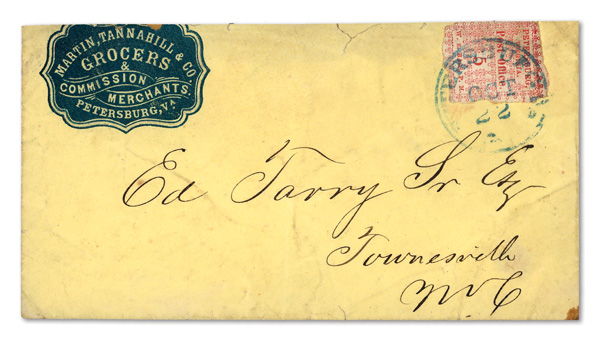 MARTIN, TANNAHILL & CO.
GROCERS
&
COMMISSION
MERCHANTS.
PETERSBURG, VA
5
OCT
22
Ed Tarry Sr Esq
Townesville
N. C